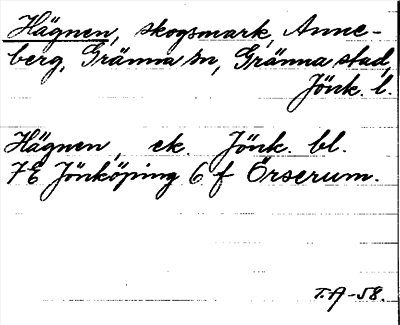 Hägnen, skogsmark, Anne-
berg, Gränna sn, Gränna stad,
Jönk. l.
Hägnen, ek. Jönk. bl.
7E Jönköping 6 f Örserum.
T.A-58.